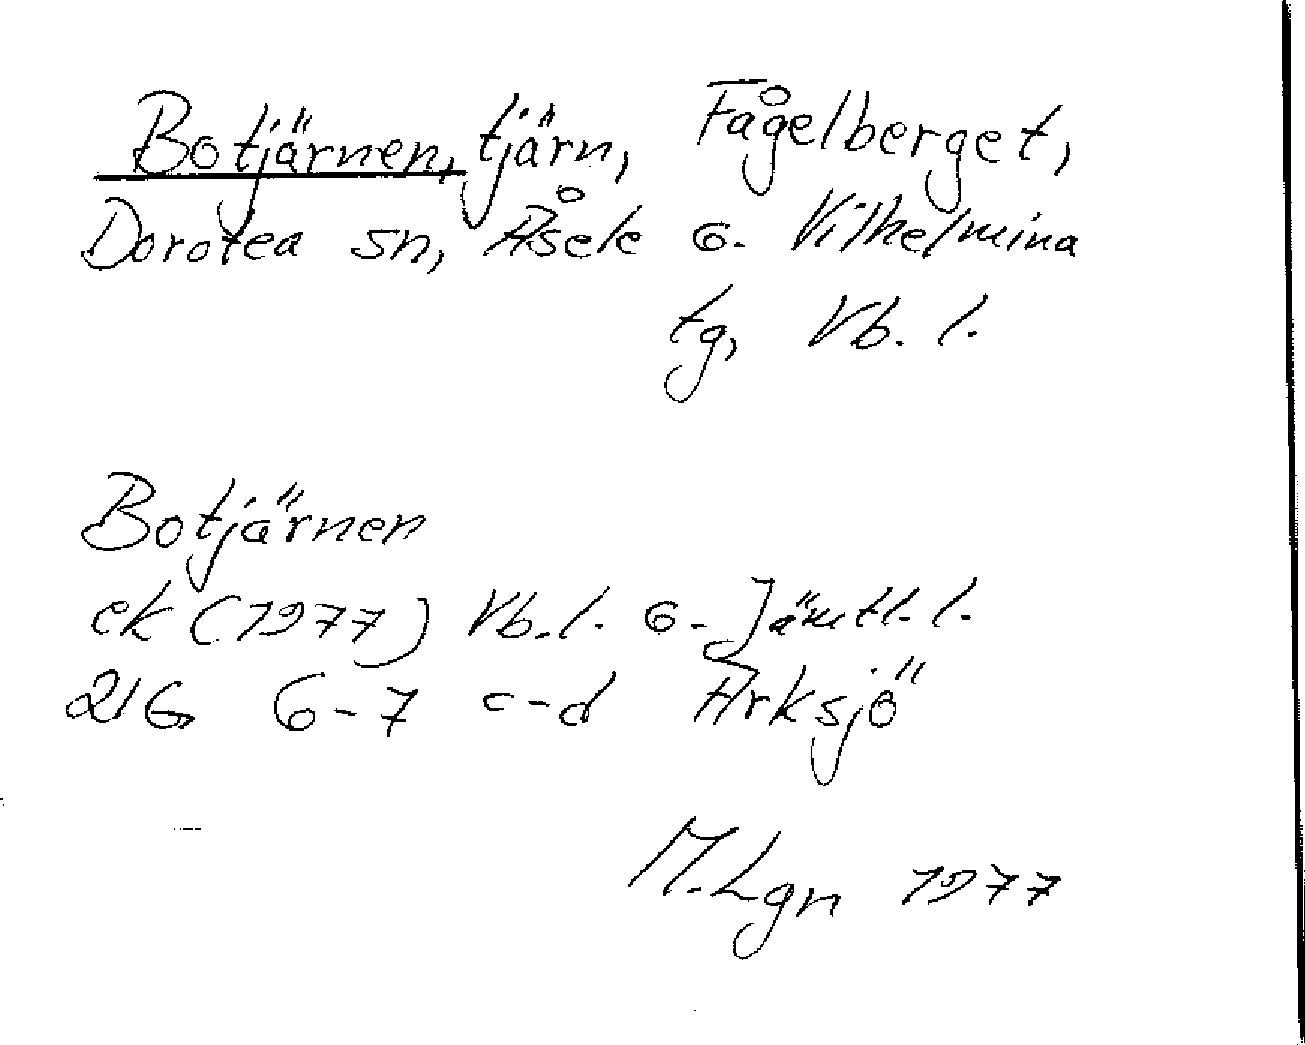 Botjärnen, tjärn, Fågelberget,
Dorotea sn, Åsele o. Vilhelmina
tg, Vb. l.
Botjärnen
ek (1977) Vb. l. o. Jämtl. l.
21G, 6-7 c-d Arksjö
M. Lgn 1977